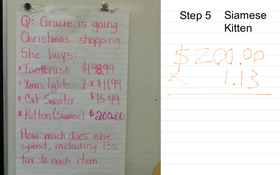 Q: Gracie is going
Christmas shopping
She buys:
• Toothbrush $198.99
• Xmas lights 7 x $11.99
• Cat Sweater $15.49
• Kitten (Siamese) $200.00
How much does she
spend, including 13%
tax to each item.
Step 5 Siamese
Kitten
$200.00
x 1.13